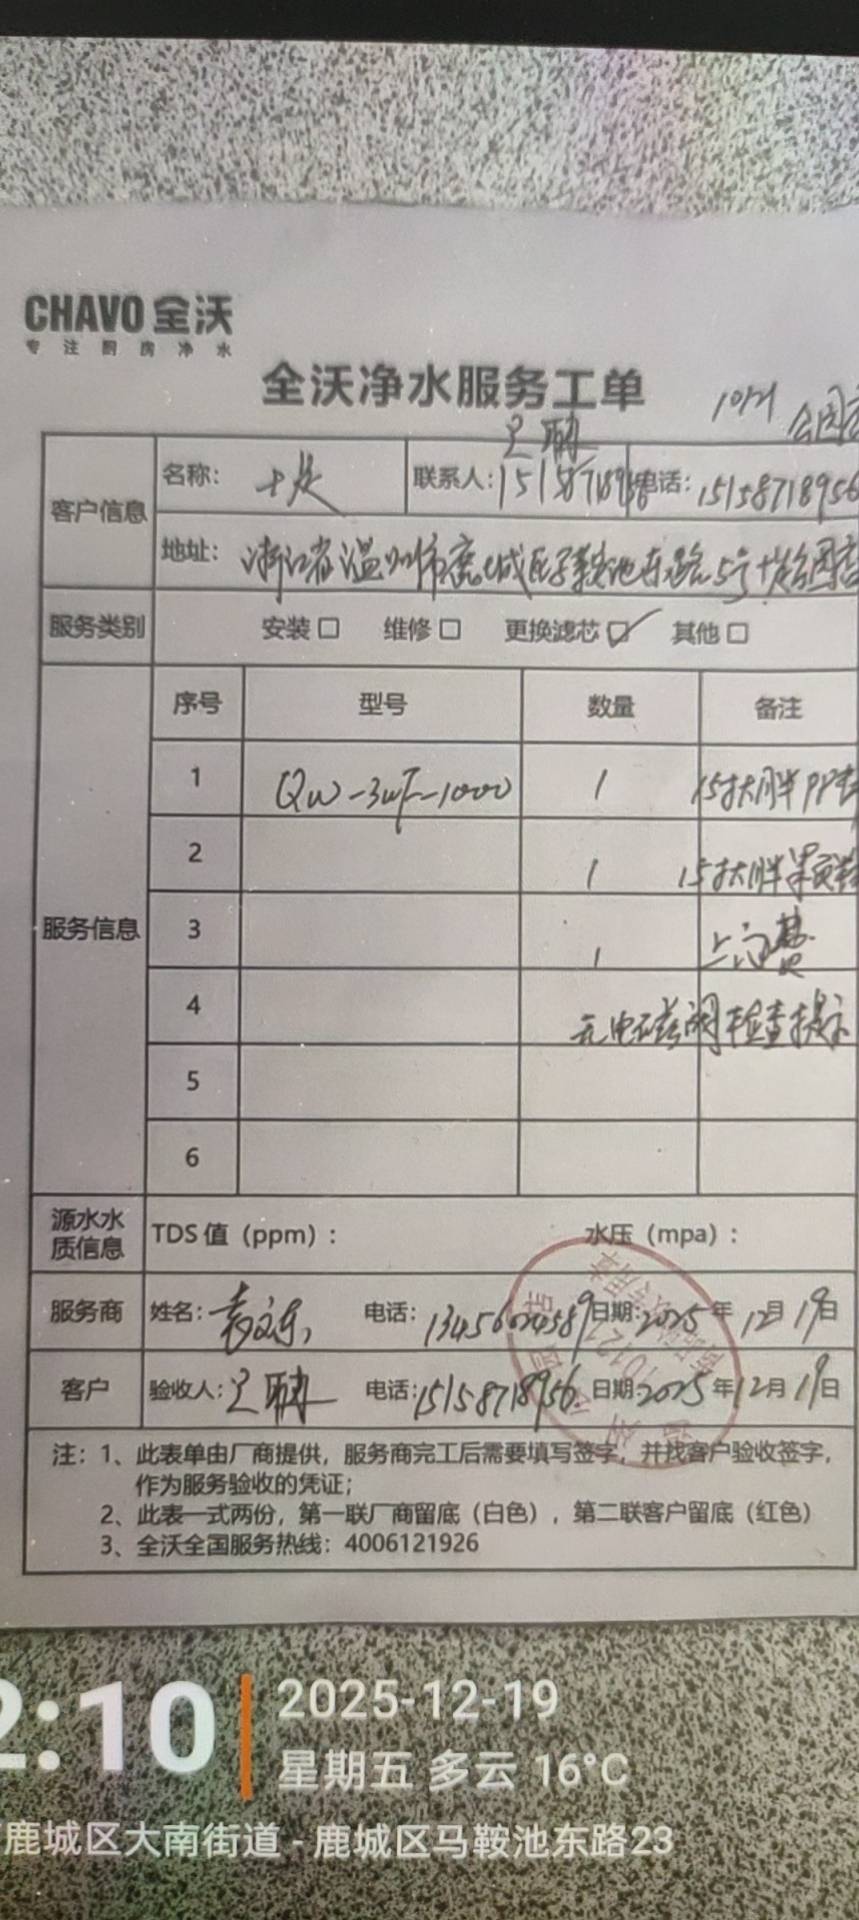 CHAVO 全沃
专注厨房净水
全沃净水服务工单
客户信息 名称: 联系人: 电话: 15158718956
地址: 浙江省温州市鹿城区 鞍池东路5号
服务类别 安装□ 维修□ 更换滤芯☑ 其他□
服务信息 序号 型号 数量 备注
1 QW-3UF-1000 1 15寸大胖PP
2 1 15寸大胖
3 1 上门费
4 无电磁阀 检查提示
5
6
源水水质信息 TDS 值（ppm）: 水压（mpa）:
服务商 姓名: 电话: 日期: 2025年12月19日
客户 验收人: 电话: 15158718956 日期: 2025年12月19日
注: 1、此表单由厂商提供，服务商完工后需要填写签字，并找客户验收签字，
作为服务验收的凭证；
2、此表一式两份，第一联厂商留底（白色），第二联客户留底（红色）
3、全沃全国服务热线: 4006121926
2:10
2025-12-19
星期五 多云 16°C
鹿城区大南街道 - 鹿城区马鞍池东路23